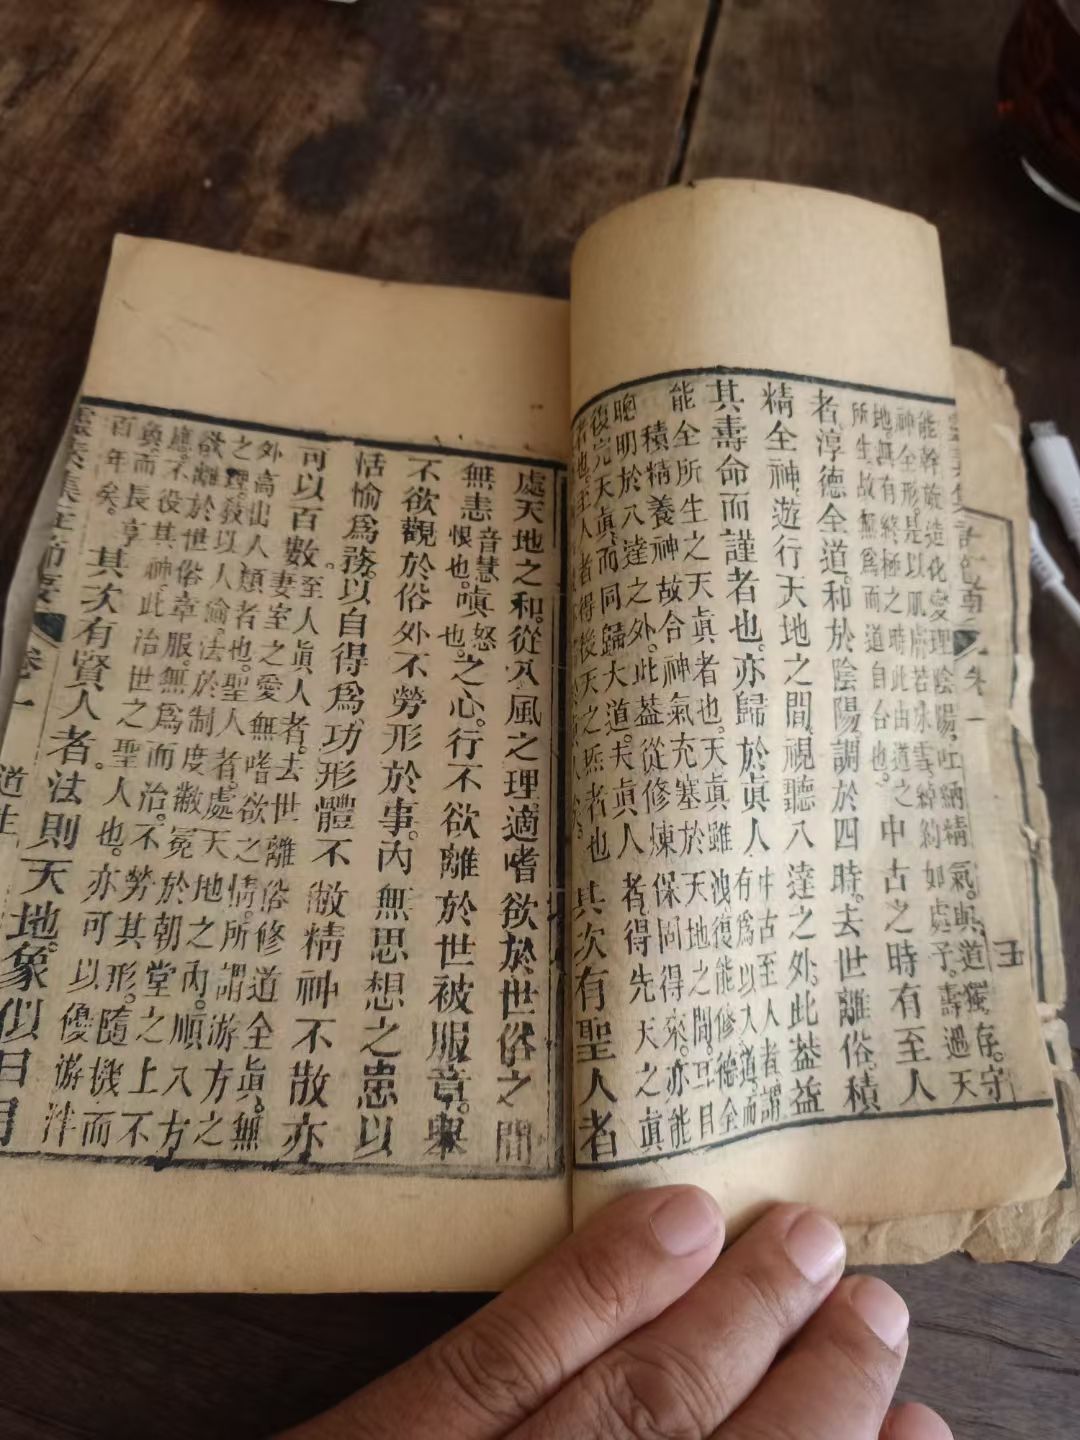 能幹旋造化燮理陰陽吐納精氣與道獨存守
神全形是以肌膚若冰雪綽約如處子壽過天
地無有終極之時此由道之
所生故無爲而道自合也
中古之時有至人
者淳德全道和於陰陽調於四時去世離俗積
精全神遊行天地之間視聽八達之外此蓋益
其壽命而謹者也亦歸於眞人
中古至人者謂
有爲以入道而
能修德全
能全所生之天眞者也天眞雖洩復
積精養神故合神氣充塞於天地之間耳目
聰明於八達之外此蓋從修煉保固得來亦能
復完天眞而同歸大道夫眞人者得先天之眞
者也至人者得後天之炁者也
其次有聖人者
處天地之和從八風之理適嗜欲於世俗之間
無恚
音慧
恨也
嗔
怒
也
之心行不欲離於世被服章舉
不欲觀於俗外不勞形於事內無思想之患以
恬愉爲務以自得爲功形體不敝精神不散亦
可以百數
至人眞人者去世離俗修道全眞無
妻室之愛無嗜欲之情所謂游方之
外高出人類者也聖人者處天地之內順八方
之理教以人倫法於制度敝冕於朝堂之上不
欲離於世俗章服無爲而治不勞其形隨機而
應不役其神此治世之聖人也亦可以優游泮
奐而長享
百年矣
其次有賢人者法則天地象似日月
靈素集註節要
卷一
道生